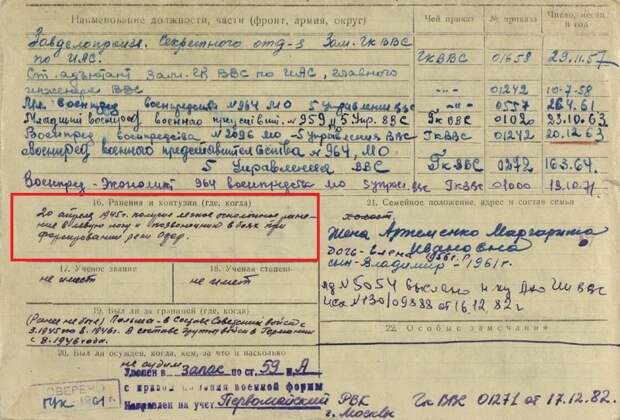 Наименование должности, части (фронт, армия, округ)
Чей приказ
№ приказа
Число, месяц и год
Завделопроизв. Секретного отд-я Зам. Гк ВВС
по ИАС.
ГкВВС
01658
29.11.57
Ст. адъютант Зам. Гк ВВС по ИАС, главного
инженера ВВС
-"-
01242
10.7.58
военпред военпредства №964 МО 5 Управления ВВС
-"-
0557
26.4.61
Младший военпред военного представит. №959 5 Упр. ВВС
Гк ВВС
0102
23.10.63
Военпред военпредства №2096 МО 5 Управления ВВС
ГкВВС
01242
20.12.63
Военпред военного представительства №964, МО
5 Управления ВВС
Гк ВВС
0272
Военпред-Экономист 964 военпредства МО 5 управ. ВВС
ГкВВС
19.10.71
16. Ранения и контузии (где, когда)
20 апреля 1945г. получил легкое осколочное ране-
ние в левую ногу и позвоночник в бою при
форсировании реки Одер.
17. Ученое звание
не имеет
18. Ученая степень
не имеет
19. Был ли за границей (где, когда)
Польша - в составе Советских войск с
3.1945 по 8.1946г. В составе группы войск в Германии
с 8.1946 года.
20. Был ли осужден, когда, кем, за что и насколько
не судим
Уволен в запас по ст. 59 п. А
с правом ношения военной формы
Направлен на учет Первомайский РВК
г. Москвы
Гк ВВС 01271 от 17.12.82.
СВЕРЕНО
1961 г.
21. Семейное положение, адрес и состав семьи
холост
Жена Артеменко Маргарита
Ивановна
дочь-Елена 1956г.
сын-Владимир-1961г.
№5054 выслано
исх №130/09888 от 16.12.82г
22. Особые замечания